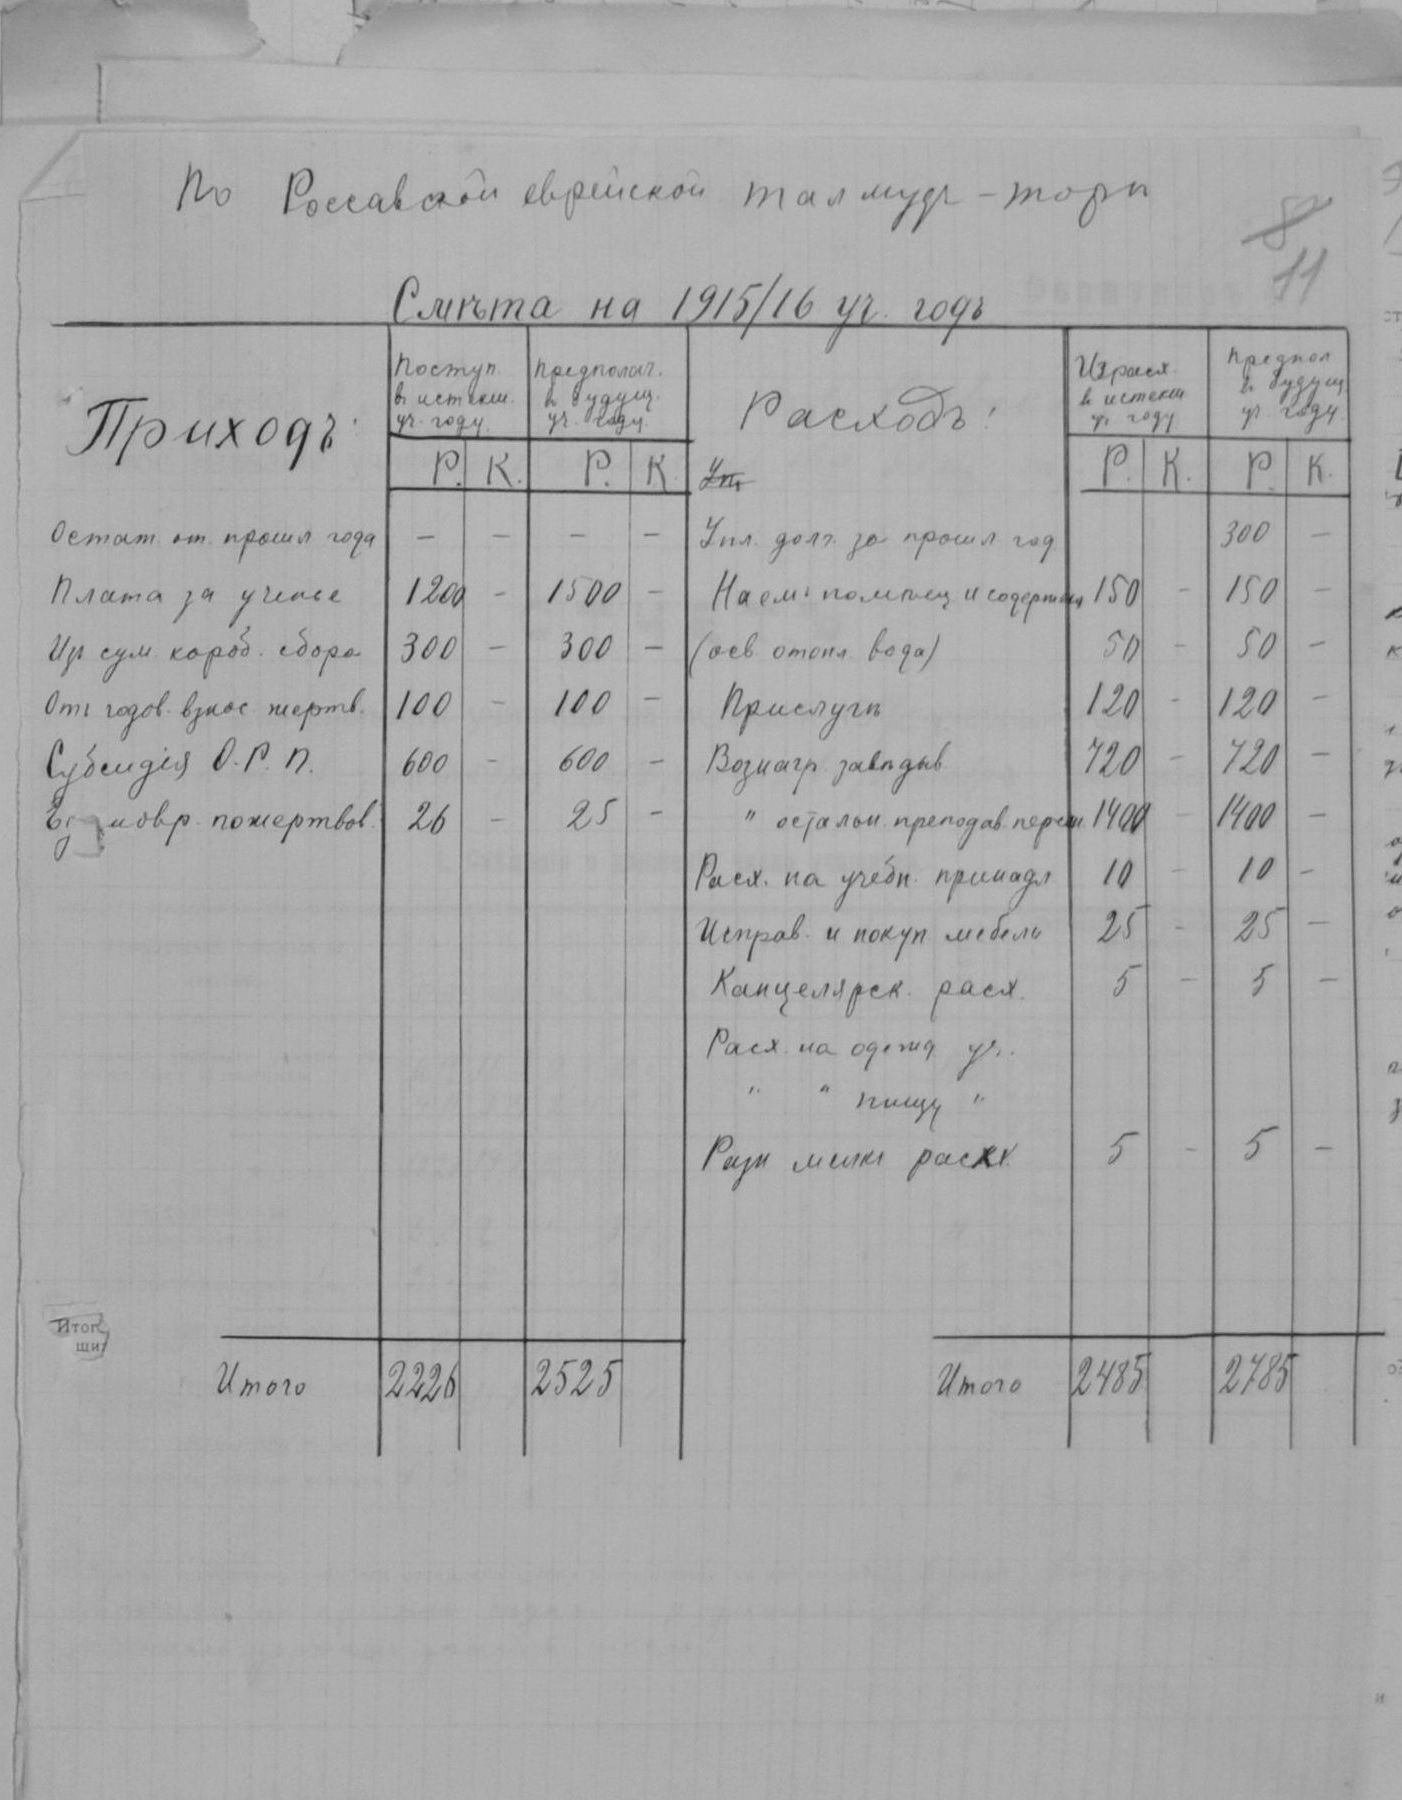 По Россавской еврейской талмудъ-торѣ
8
11
Смѣта на 1915/16 уч. годъ
Приходъ: Поступ. в истекш. уч. году. Предполаг. в будущ. уч. году. Расходъ: Израсх. в истекш уч году Предпол в будущ уч. году.
Р. К. Р. К. Уп. Р. К. Р. К.
Остат. от. прошл года — — — — Упл. долг. за прошл год 300 —
Плата за ученье 1200 — 1500 — Наемъ помѣщ и содержан 150 — 150 —
Из сум. короб. сбора 300 — 300 — (осв отопл. вода) 50 — 50 —
Отъ годов. взнос жертв. 100 — 100 — Прислугѣ 120 — 120 —
Субсидія О.Р.П. 600 — 600 — Вознагр. завѣдыв 720 — 720 —
пожертвов. 26 — 25 — " остальн. преподав. персон. 1400 — 1400 —
Расх. на учебн. принадл 10 — 10 —
Исправ. и покуп мебели 25 — 25 —
Канцелярск. расх. 5 — 5 —
Расх. на одежд уч.
" " пищу "
Разн мелк расх. 5 — 5 —
Итог
щи
Итого 2226 2525 Итого 2485 2785